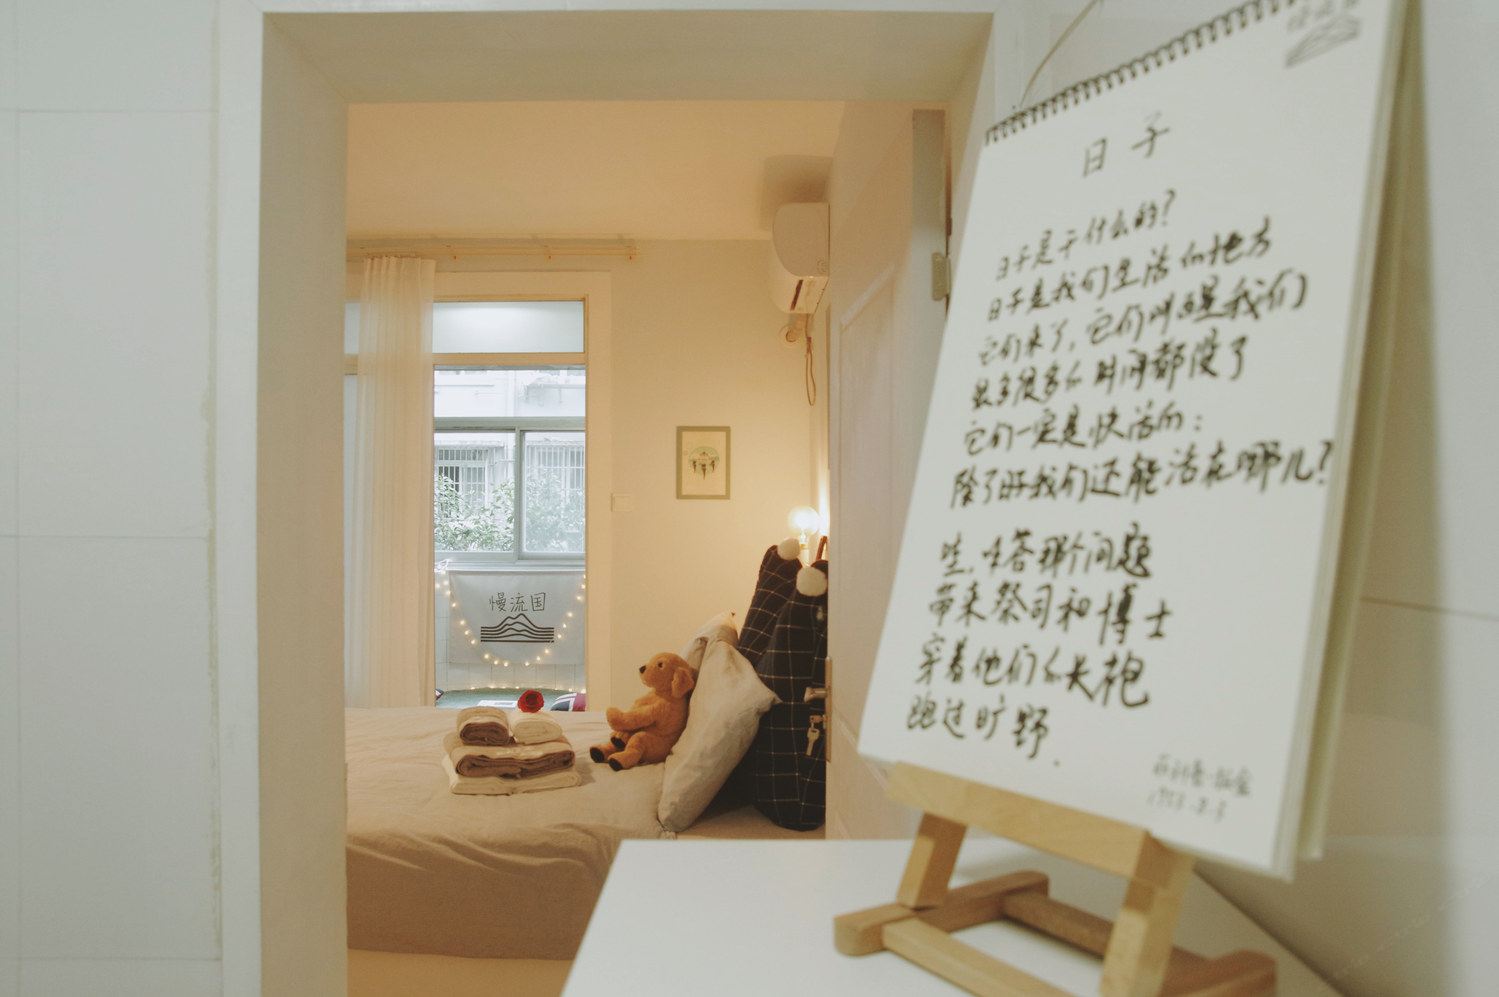 慢流国
日子
日子是干什么的？
日子是我们生活的地方
它们来了，它们叫醒我们
很多很多的时间都没了
它们一定是快活的：
除了日子我们还能活在哪儿？
哇，回答那个问题
带来祭司和博士
穿着他们的长袍
跑过旷野.
菲利普·拉金
慢流国